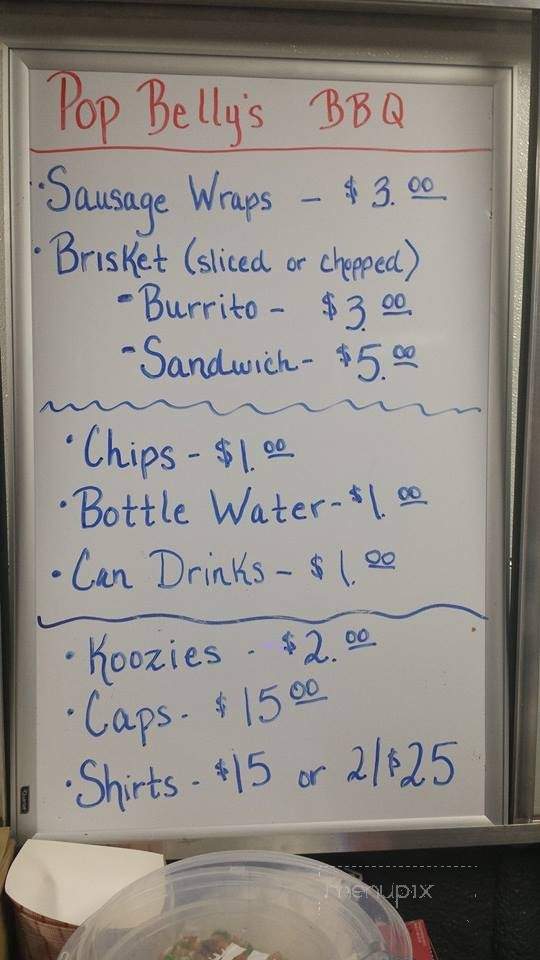 Pop Belly's BBQ
• Sausage Wraps - $3.00
• Brisket (sliced or chopped)
- Burrito - $3.00
- Sandwich - $5.00
• Chips - $1.00
• Bottle Water - $1.00
• Can Drinks - $1.00
• Koozies - $2.00
• Caps - $15.00
• Shirts - $15 or 2/$25
menupix